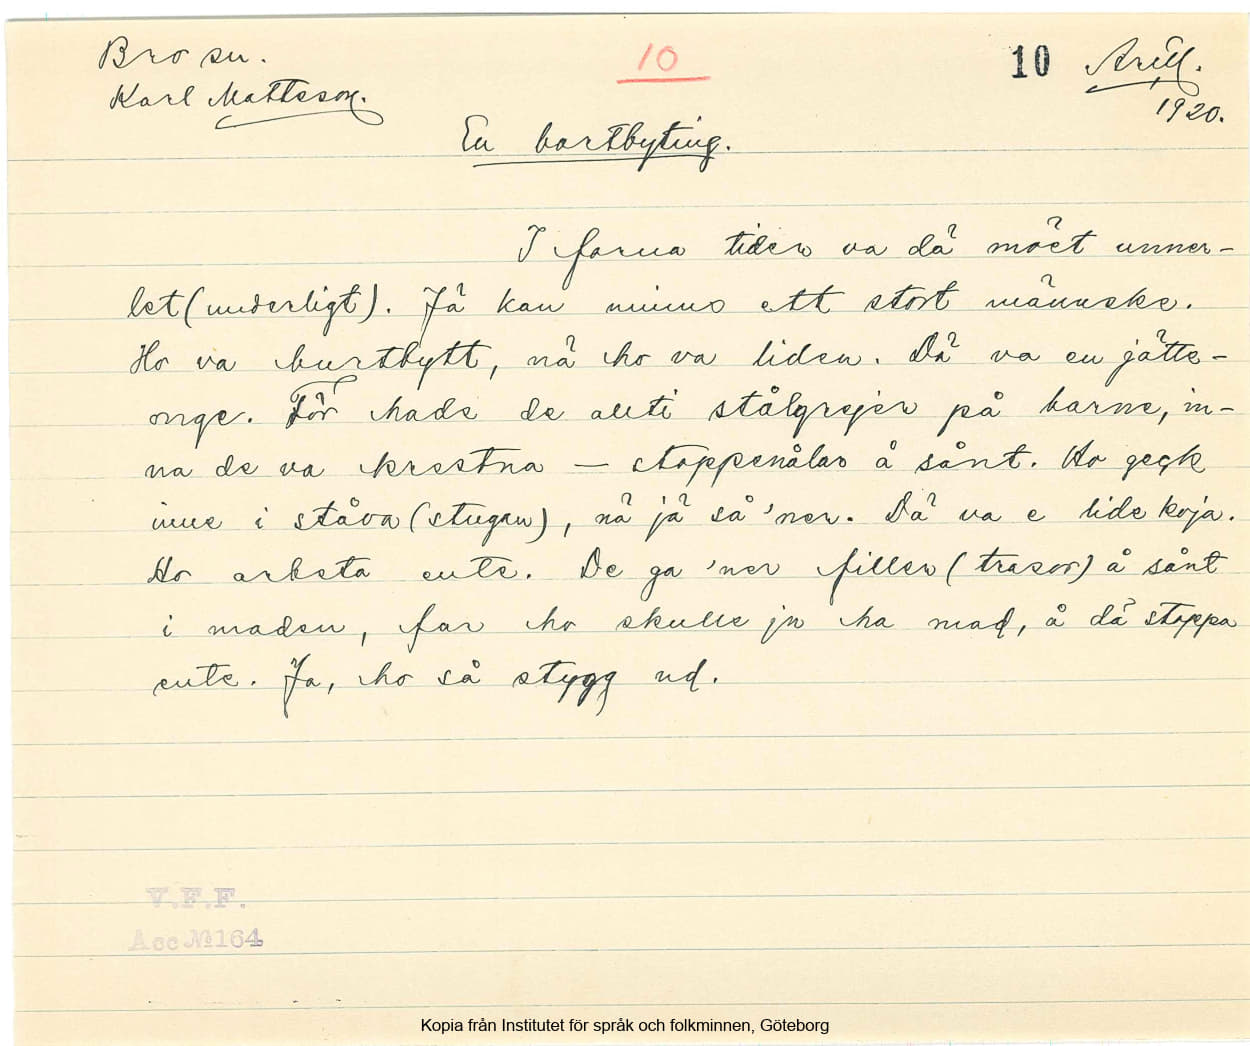 Bro sn.
Karl Mattsson.
10
10
Arill.
1920.
En bortbyting.
I forna tider va dä möet unner-
let (underligt). Jä kan minns ett stort männske.
Ho va burtbytt, nä ho va liden. Dä va en jätte-
onge. Förr hade de allti stålgrejer på barne, in-
na de va krestna — stoppenålar å sånt. Ho geck
inne i ståva (stugan), nä jä så 'ner. Dä va e lide koja.
Ho arbeta ente. De ga 'ner filler (trasor) å sånt
i maden, far ho skulle ju ha mad, å dä stoppa
ente. Ja, ho så stygg ud.
V.F.F.
Acc № 164
Kopia från Institutet för språk och folkminnen, Göteborg